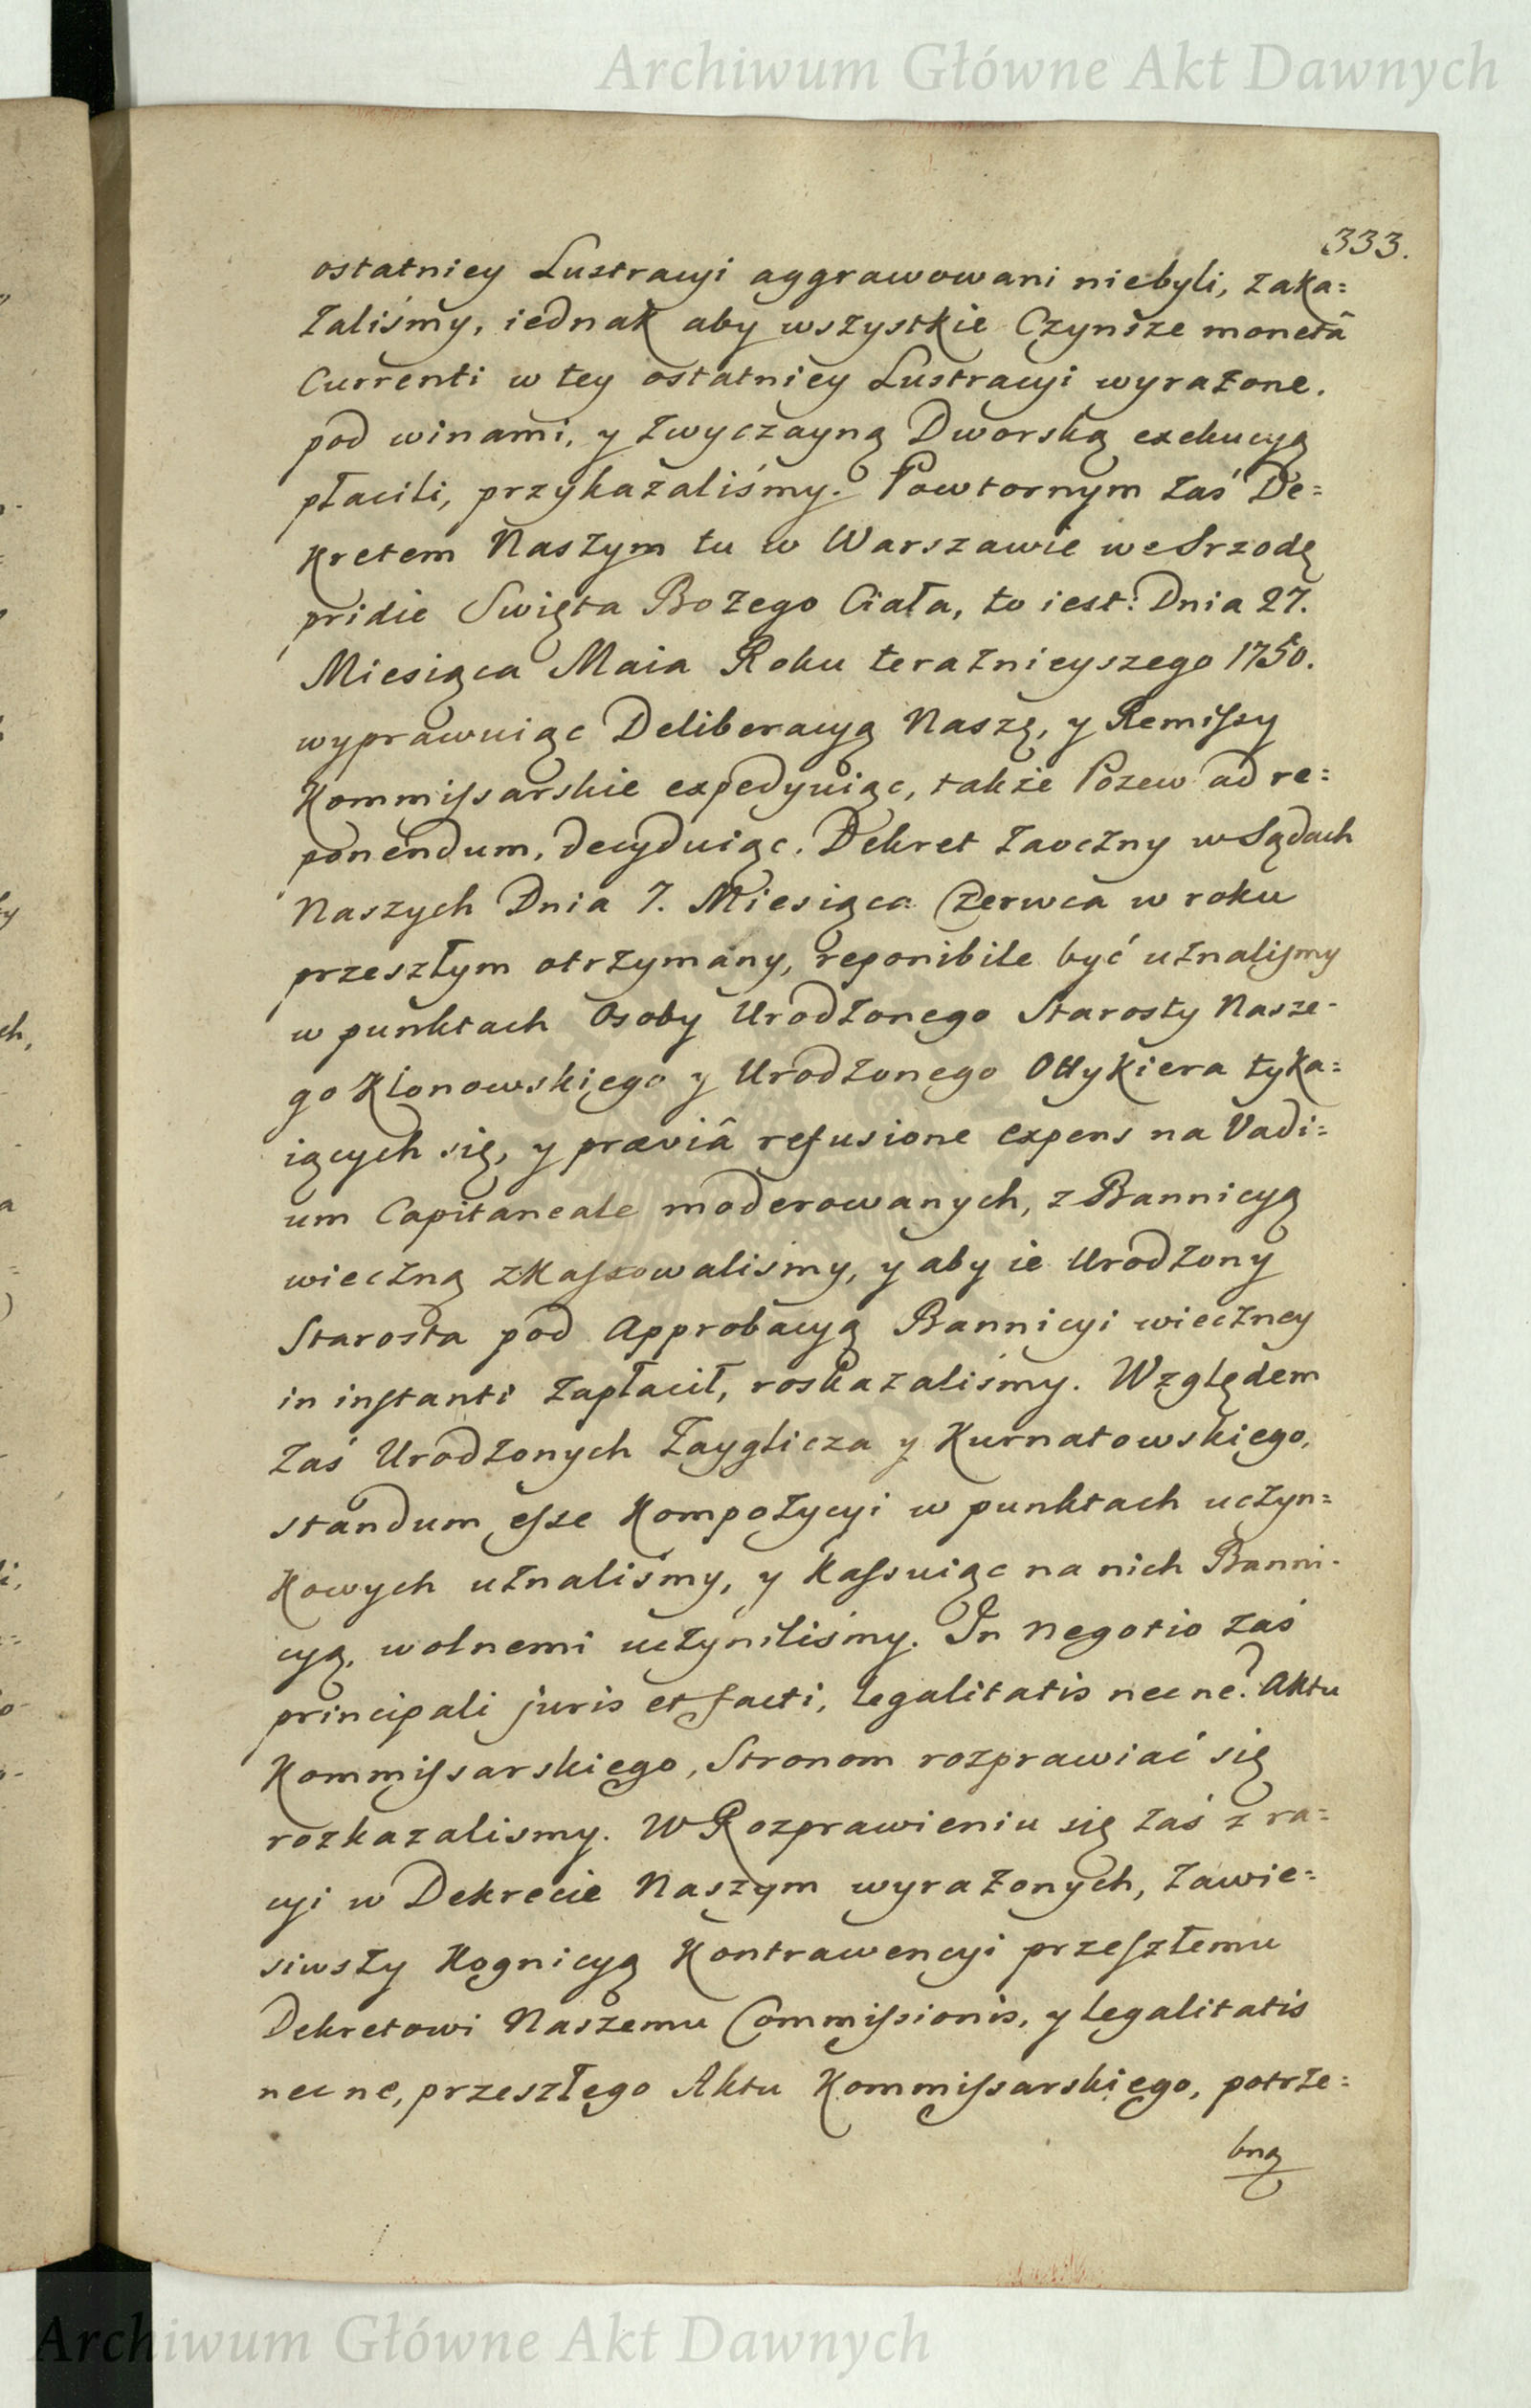 Archiwum Główne Akt Dawnych
333.
ostatniey Lustracyi aggrawowani niebyli, zaka=
zaliśmy, iednak aby wszystkie Czynsze monetâ
Currenti w tey ostatniey Lustracyi wyrażone.
pod winami, y zwyczayną Dworską exekucyą
płacili, przykazaliśmy. Powtornym zaś De=
kretem Naszym tu w Warszawie we Srzodę
pridie Swięta Bożego Ciała, to iest: Dnia 27.
Miesiąca Maia Roku teraznieyszego 1750.
wyprawuiąc Deliberacyą Naszę, y Remissy
Kommissarskie expedyuiąc, także Pozew ad re=
ponendum, decyduiąc. Dekret zaoczny w Sądach
Naszych Dnia 7. Miesiąca Czerwca w roku
przeszłym otrzymany, reponibile być uznalismy
w punktach Osoby Urodzonego Starosty Nasze-
go Klonowskiego y Urodzonego Ottykiera tyka=
iących się, y præviâ refusione expens na Vadi=
um Capitaneale moderowanych, z Bannicyą
wieczną zkassowalismy, y aby ie Urodzony
Starosta pod Approbacyą Bannicyi wieczney
in instanti zapłacił, roskazaliśmy. Względem
zaś Urodzonych Zayglicza y Kurnatowskiego,
standum esse Kompozycyi w punktach uczyn=
kowych uznaliśmy, y kassuiąc na nich Banni-
cyą, wolnemi uczyniliśmy. In negotio zaś
principali juris et facti, legalitatis nec ne? Aktu
Kommissarskiego, Stronom rozprawiać się
rozkazalismy. W Rozprawieniu się zaś z ra=
cyi w Dekrecie Naszym wyrażonych, zawie=
siwszy Kognicyą Kontrawencyi przeszłemu
Dekretowi Naszemu Commissionis, y legalitatis
nec ne, przeszłego Aktu Kommissarskiego, potrze=
bną
Archiwum Główne Akt Dawnych